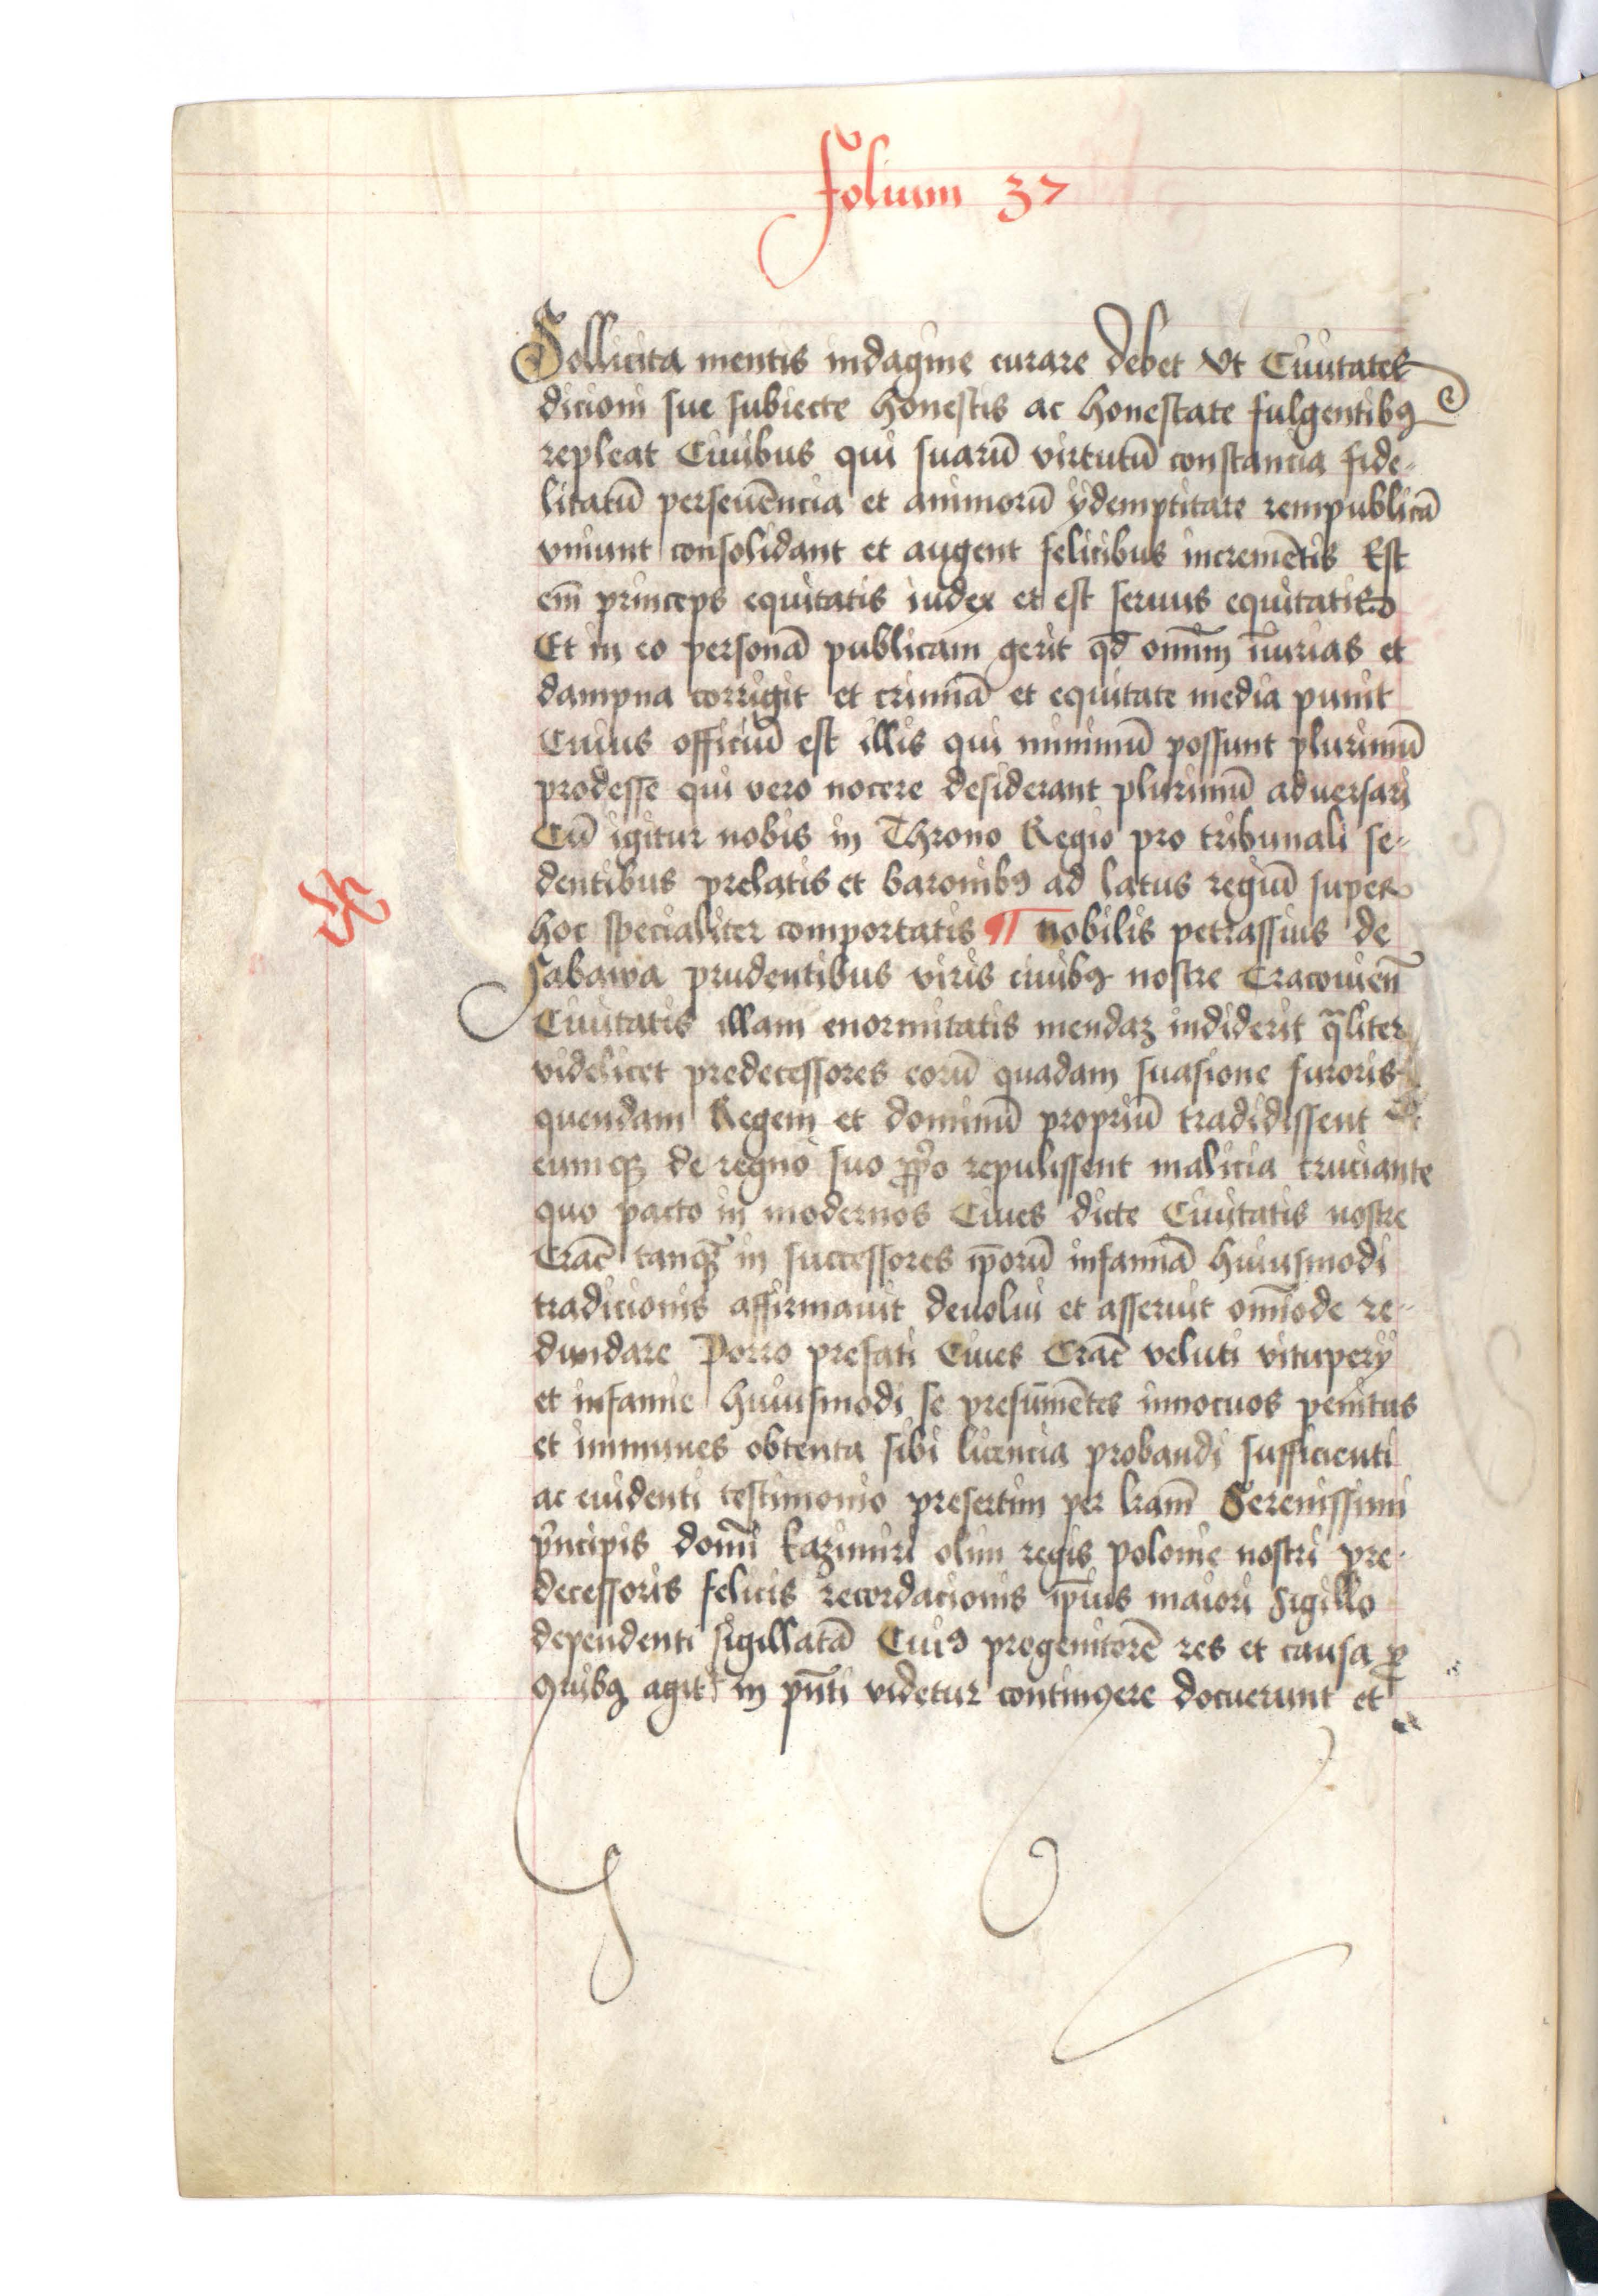 Folium 37
Sollicita mentis indagine curare debet Vt Ciuitates
dicioni sue subiecte honestis ac honestate fulgentibꝯ
repleat Ciuibus qui suarū virtutū constancia fide-
litatū perseuēncia et animorū ydemptitate rempublicā
vniunt consolidant et augent felicibus incremētis Est
em̄ princeps equitatis iudex et est seruus equitatis
Et in eo personā publicam gerit qd̄ omnīm iniurias et
dampna corrigit et criminā et equitate media punit
Cuius officiū est illis qui minimū possunt plurimū
prodesse qui vero nocere desiderant plurimū aduersari
Cū igitur nobis in Throno Regio pro tribunali se-
dentibus prelatis et baronibꝯ ad latus regiū super
hoc specialiter comportatis ¶ nobilis petrassius de
Sabawa prudentibus viris ciuibꝯ nostre Cracouien̄
Ciuitatis illam enormitatis mendaz indiderit q̄liter
videlicet predecessores eorū quadam suasione furoris
quendam Regem et dominū propriū tradidissent
eumqꝫ de regno suo ꝓp̄o repulissent malicia cruciante
quo pacto in modernos Ciues dicte Ciuitatis nostre
Crac̄ tanqꝫ in successores ip̄orū infamiā huiusmodi
tradicionis affirmauit deuolui et asseruit omīode re-
dundare Porro prefati Ciues Crac̄ veluti vitupery
et infamie huiusmodi se presūmētes innocuos penitus
et immunes obtenta sibi licencia probandi sufficienti
ac euidenti testimonio presertim per lr̄am Serenissimi
pͥncipis domī kazimiri olim regis polonie nostri pre-
decessoris felicis recordacionis ip̄ius maiori sigillo
dependenti sigillatā Cuiꝯ progenitorē res et causa ꝓ
quibꝯ agit in pn̄ti videtur contingere docuerunt et